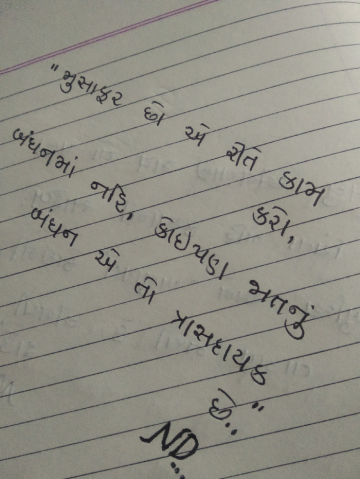 "મુસાફર છો એ રીતે કામ
કરો,
બંધનમાં નહિ, કોઇપણ મતનું
બંધન એ તો ત્રાસદાયક
છે.."
ND...